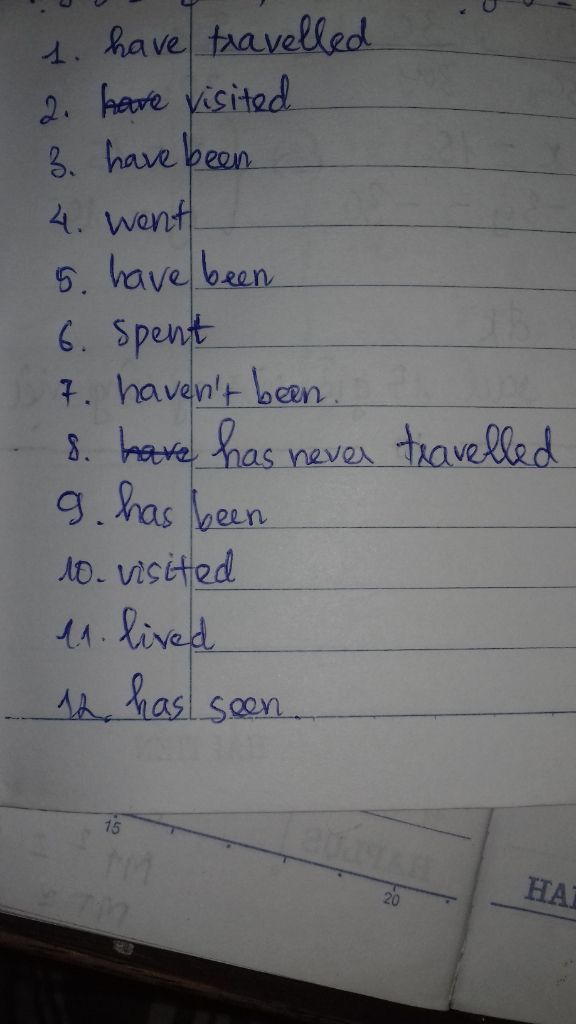 1. have travelled
2. have visited
3. have been
4. went
5. have been
6. spent
7. haven't been.
8. have has never travelled
9. has been
10. visited
11. lived
12. has seen.
15
20
HAI